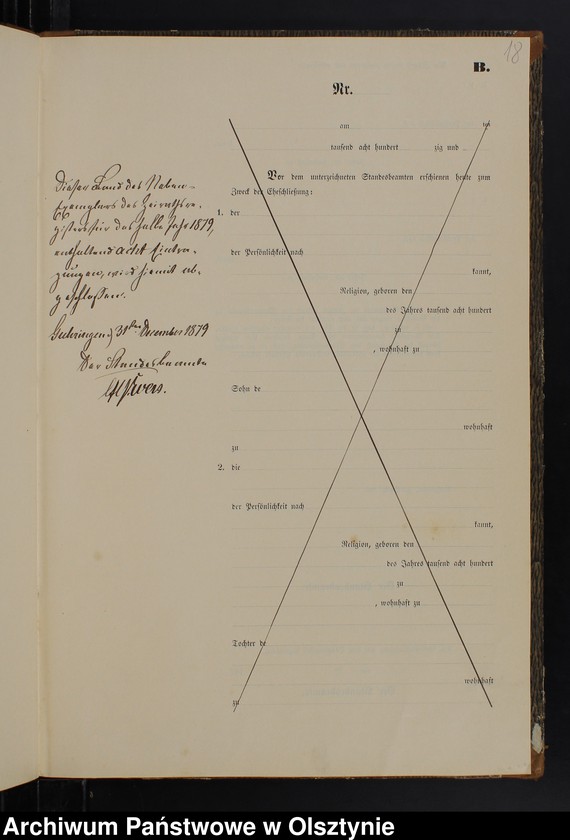 18
B.
Nr.
am ten
tausend acht hundert zig und
Vor dem unterzeichneten Standesbeamten erschienen heute zum
Zweck der Eheschließung:
1. der
der Persönlichkeit nach
kannt,
Religion, geboren den
des Jahres tausend acht hundert
zu
, wohnhaft zu
Sohn de
wohnhaft
zu
2. die
der Persönlichkeit nach
kannt,
Religion, geboren den
des Jahres tausend acht hundert
zu
, wohnhaft zu
Tochter de
wohnhaft
zu
Dieser Band des Neben-
Exemplars des Heirathsre-
gisters für das halbe Jahr 1879,
enthaltend acht Eintra-
gungen, wird hiermit ab-
geschlossen.
31ten December 1879
Der Standesbeamte
Archiwum Państwowe w Olsztynie